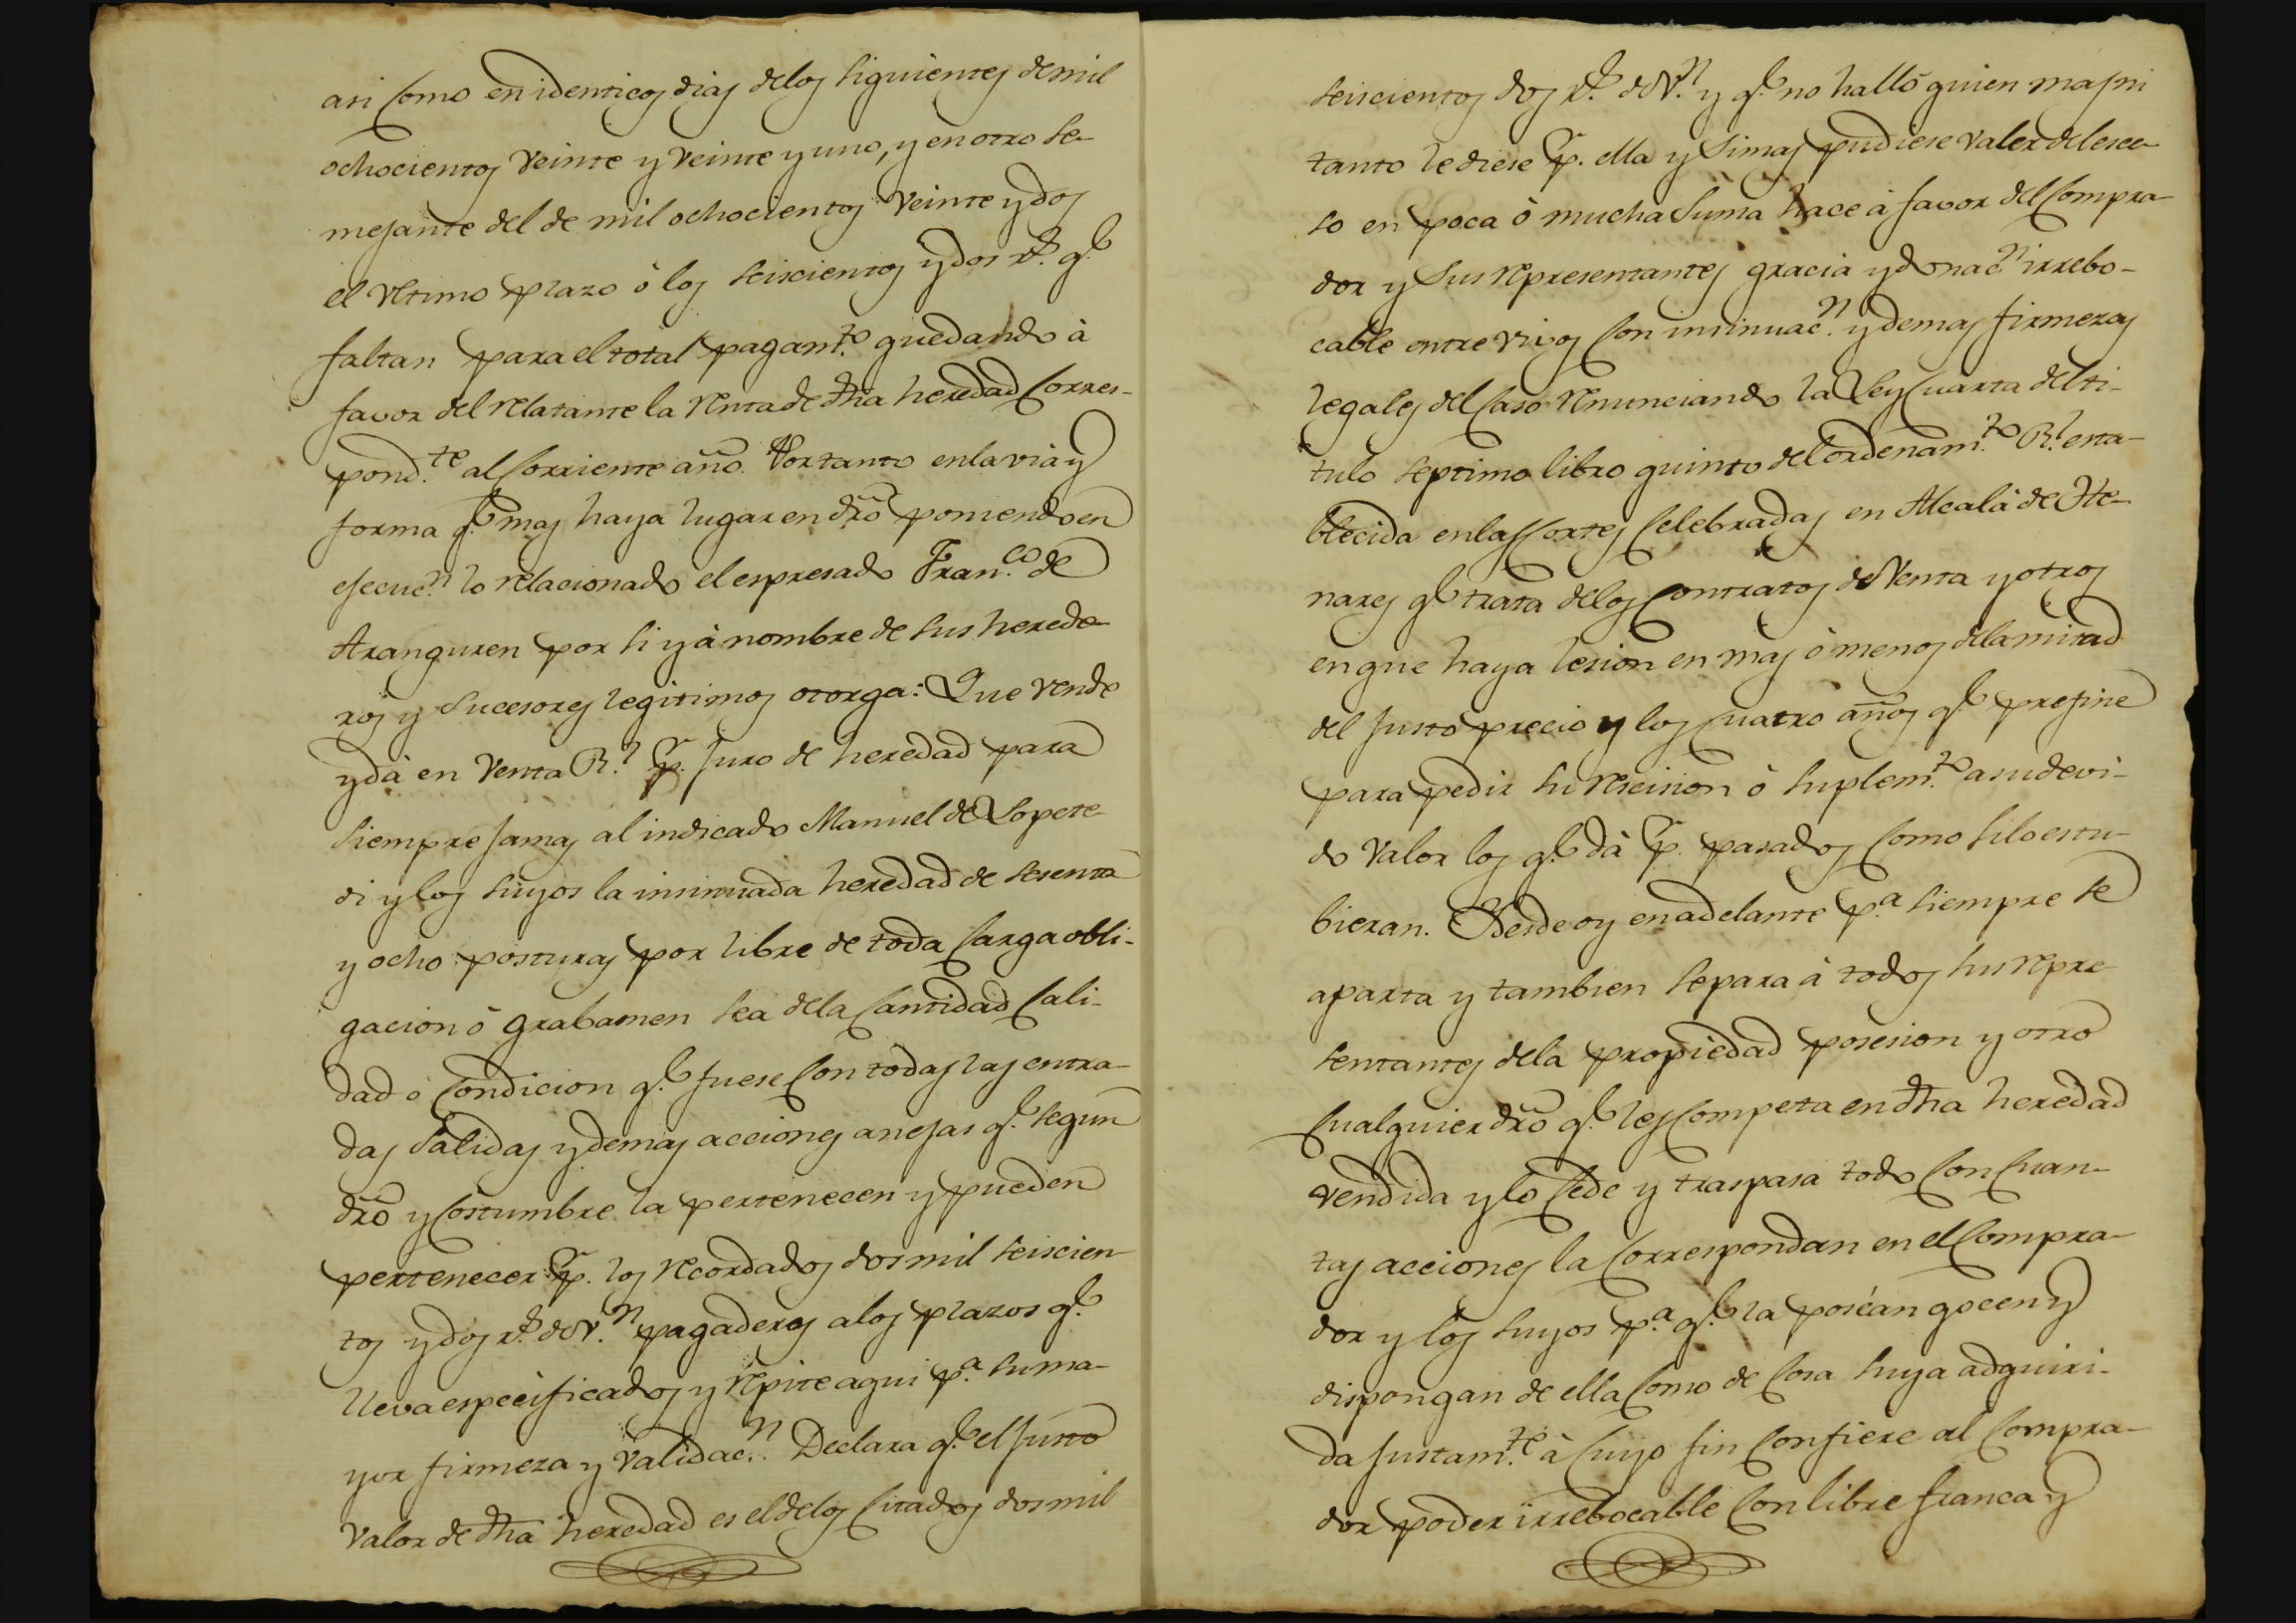 asi como en identicos dias de los siguientes de mil
ochocientos veinte y veinte y uno, y en otro se-
mejante del de mil ochocientos veinte y dos
el ultimo plazo ò los seiscientos y dos r.s q.e
faltan para el total pagam.to quedando à
favor del relatante la renta de dha heredad corres-
pond.te al corriente año. Por tanto en la via y
forma q.e mas haya lugar en dro poniendo en
ejecuc.n lo relacionado el espresado Fran.co de
Aranguren por si y à nombre de sus herede-
ros y sucesores legitimos otorga: Que vende
y dà en venta R.l p.r juro de heredad para
siempre jamas al indicado Manuel de Lopete-
di y los suyos la insinuada heredad de sesenta
y ocho posturas por libre de toda carga obli-
gacion ò grabamen sea de la cantidad cali-
dad o condicion q.e fuese con todas las entra-
das salidas y demas acciones anejas q.e segun
dro y costumbre la pertenecen y pueden
pertenecer p.r los recordados dos mil seiscien-
tos y dos r.s de v.n pagaderos a los plazos q.e
lleva especificados y repite aqui p.a su ma-
yor firmeza y validac.n. Declara q.e el justo
valor de dha heredad es el de los citados dos mil
seiscientos dos r.s de V.n y q.e no hallò quien mas ni
tanto le diese p.r ella y si mas pudiese valer del esce-
so en poca ò mucha suma hace à favor del compra-
dor y sus representantes gracia y donac.n irrebo-
cable entre vivos con insinuac.n y demas firmezas
legales del caso renunciando la Ley cuarta del ti-
tulo septimo libro quinto del ordenam.to R.l esta-
blecida en las Cortes celebradas en Alcalà de He-
nares q.e trata de los contratos de venta y otros
en que haya lesion en mas ò menos de la mitad
del justo precio y los cuatro años q.e prefine
para pedir su rescision ò suplem.to a su devi-
do valor los q.e dà p.r pasados como si lo estu-
bieran. Desde oy en adelante p.a siempre se
aparta y tambien separa à todos sus repre-
sentantes de la propiedad posesion y otro
cualquier dro q.e les competa en dha heredad
vendida y lo cede y traspasa todo con cuan-
tas acciones la correspondan en el compra-
dor y los suyos p.a q.e la posèan gocen y
dispongan de ella como de cosa suya adquiri-
da justam.te à cuyo fin confiere al compra-
dor poder irrebocable con libre franca y